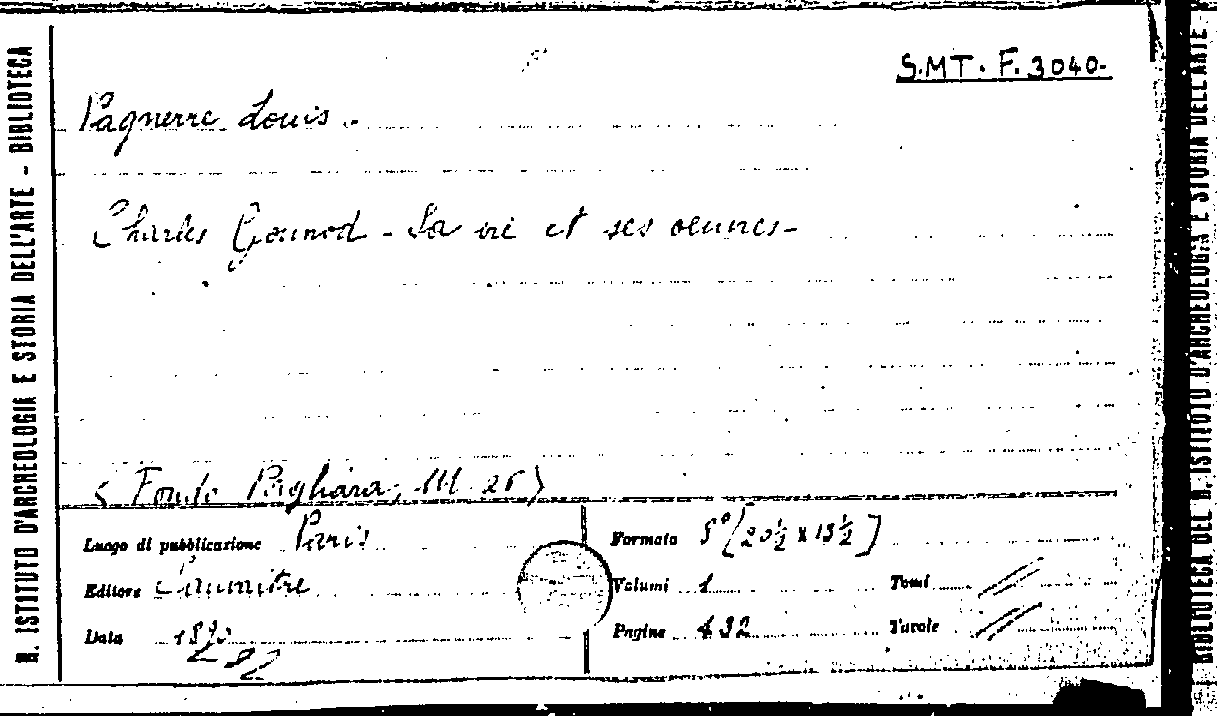 R. ISTITUTO D'ARCHEOLOGIA E STORIA DELL'ARTE - BIBLIOTECA
S.MT. F. 3040.
Pagnerre Louis.
Charles Gounod - Sa vie et ses oeuvres -
< Fondo Pagliara, III. 26 >
Luogo di pubblicazione Paris
Editore Saumitre
Data 1890
Formato 8° [20½ x 13½]
Volumi 1 Tomi //
Pagine 432 Tavole //
BIBLIOTECA DEL R. ISTITUTO D'ARCHEOLOGIA E STORIA DELL'ARTE